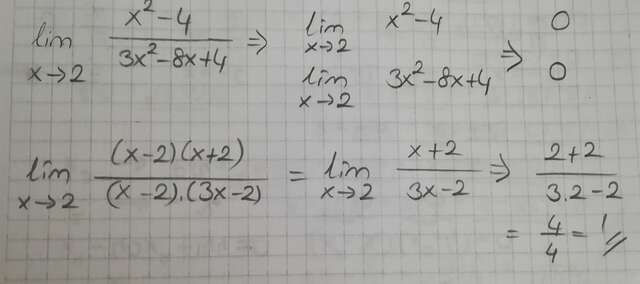 lim x→2 (x²-4)/(3x²-8x+4) ⇒ lim x→2 x²-4 / lim x→2 3x²-8x+4 ⇒ 0 / 0
lim x→2 ((x-2)(x+2))/((x-2).(3x-2)) = lim x→2 (x+2)/(3x-2) ⇒ (2+2)/(3.2-2)
= 4/4 = 1//